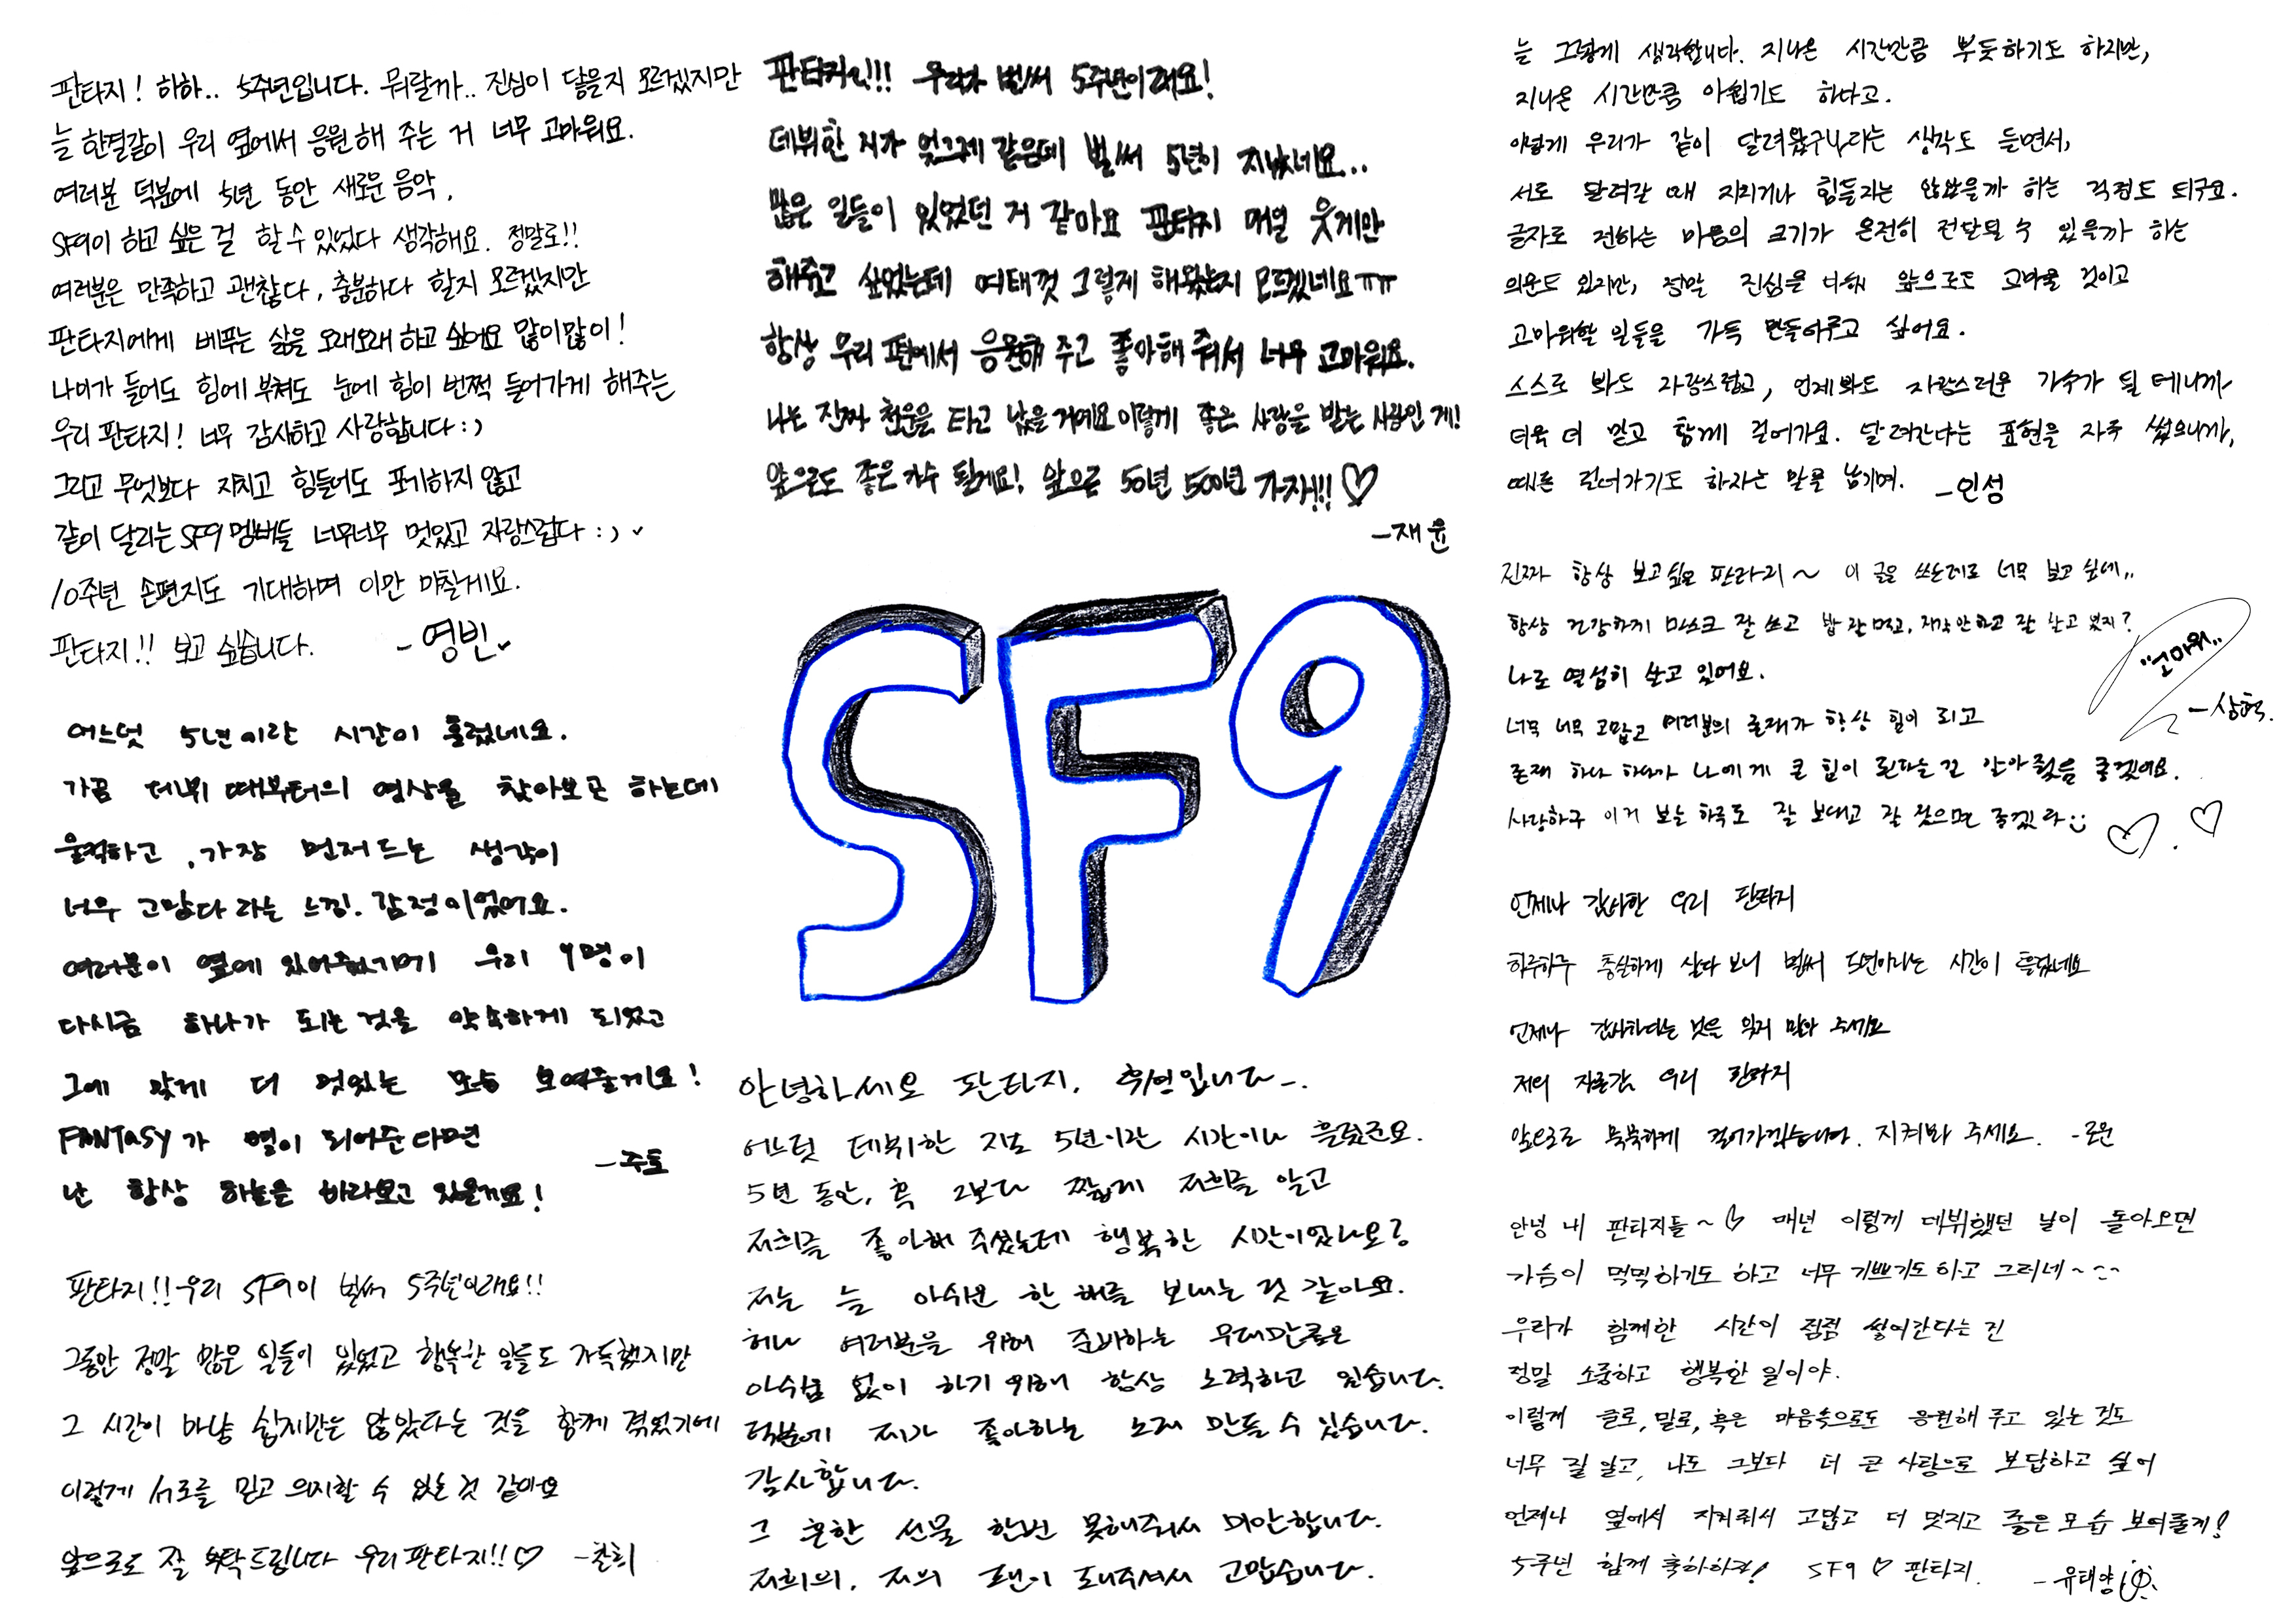 판타지! 하하.. 5주년입니다. 뭐랄까.. 진심이 닿을지 모르겠지만
늘 한결같이 우리 옆에서 응원해 주는 거 너무 고마워요.
여러분 덕분에 5년 동안 새로운 음악,
SF9이 하고 싶은 걸 할 수 있었다 생각해요. 정말로!!
여러분은 만족하고 괜찮다, 충분하다 할지 모르겠지만
판타지에게 베푸는 삶을 오래오래 하고 싶어요 많이많이!
나이가 들어도 힘에 부쳐도 눈에 힘이 번쩍 들어가게 해주는
우리 판타지! 너무 감사하고 사랑합니다 :)
그리고 무엇보다 지치고 힘들어도 포기하지 않고
같이 달리는 SF9 멤버들 너무너무 멋있고 자랑스럽다 :)
10주년 손편지도 기대하며 이만 마칠게요.
판타지!! 보고 싶습니다.
- 영빈
어느덧 5년이란 시간이 흘렀네요.
가끔 데뷔 때부터의 영상을 찾아보곤 하는데
울컥하고, 가장 먼저 드는 생각이
너무 고맙다 라는 느낌. 감정이었어요.
여러분이 옆에 있어줬기에 우리 9명이
다시금 하나가 되는 것을 약속하게 되었고
그에 맞게 더 멋있는 모습 보여줄게요!
FANTASY가 별이 되어준다면
난 항상 하늘을 바라보고 있을게요!
- 주호
판타지!! 우리 SF9이 벌써 5주년이래요!!
그동안 정말 많은 일들이 있었고 행복한 일들도 가득했지만
그 시간이 마냥 쉽지만은 않았다는 것을 함께 겪었기에
이렇게 서로를 믿고 의지할 수 있는 것 같아요
앞으로도 잘 부탁드립니다 우리 판타지!!♡ - 찬희
판타지!!! 우리가 벌써 5주년이래요!
데뷔한 지가 엊그제 같은데 벌써 5년이 지났네요...
많은 일들이 있었던 거 같아요 판타지 매일 웃게만
해주고 싶었는데 여태껏 그렇게 해왔는지 모르겠네요ㅠㅠ
항상 우리 편에서 응원해 주고 좋아해 줘서 너무 고마워요.
나는 진짜 천운을 타고 났을 거예요 이렇게 좋은 사랑을 받는 사람인 게!
앞으로도 좋은 가수 될게요! 앞으로 50년 500년 가자!!!♡
- 재윤
SF9
안녕하세요 판타지, 휘영입니다-.
어느덧 데뷔한 지도 5년이란 시간이나 흘렀군요.
5년 동안, 혹 그보다 짧게 저희를 알고
저희를 좋아해 주셨는데 행복한 시간이었나요?
저는 늘 아쉬운 한 해를 보내는 것 같아요.
허나 여러분을 위해 준비하는 무대만큼은
아쉬움 없이 하기 위해 항상 노력하고 있습니다.
덕분에 제가 좋아하는 노래 만들 수 있습니다.
감사합니다.
그 흔한 선물 한번 못해줘서 미안합니다.
저희의, 저의 팬이 되어주셔서 고맙습니다.
늘 그렇게 생각합니다. 지나온 시간만큼 뿌듯하기도 하지만,
지나온 시간만큼 아쉽기도 하다고.
이렇게 우리가 같이 달려왔구나라는 생각도 들면서,
서로 달려갈 때 지치거나 힘들지는 않았을까 하는 걱정도 되구요.
글자로 전하는 마음의 크기가 온전히 전달될 수 있을까 하는
의문도 있지만, 정말 진심을 다해 앞으로도 고마울 것이고
고마워할 일들을 가득 만들어주고 싶어요.
스스로 봐도 자랑스럽고, 언제봐도 자랑스러운 가수가 될 테니까
더욱 더 믿고 함께 걸어가요. 달려간다는 표현을 자주 썼으니까,
때론 걸어가기도 하자는 말을 남기며. - 인성
진짜 항상 보고싶은 판타지~ 이 글을 쓰는데도 너무 보고 싶네..
항상 건강하게 마스크 잘 쓰고 밥 잘 먹고, 잘 살고 있지?
나도 열심히 살고 있어요.
너무 너무 고맙고 여러분의 존재가 항상 힘이 되고
존재 하나 하나가 나에게 큰 힘이 된다는걸 알아줬음 좋겠어요.
사랑하구 이거 보는 하루도 잘 보내고 잘 잤으면 좋겠다
"고마워.."
- 상혁.
언제나 감사한 우리 판타지
하루하루 충실하게 살다 보니 벌써 5년이라는 시간이 흘렀네요
언제나 감사하다는 것을 잊지 말아 주세요
저의 자존감 우리 판타지
앞으로도 묵묵하게 걸어가겠습니다. 지켜봐 주세요. - 로운
안녕 내 판타지들~♡ 매년 이렇게 데뷔했던 날이 돌아오면
가슴이 먹먹하기도 하고 너무 기쁘기도 하고 그러네~
우리가 함께한 시간이 점점 쌓여간다는 건
정말 소중하고 행복한 일이야.
이렇게 글로, 말로, 혹은 마음속으로도 응원해 주고 있는 것도
너무 잘 알고, 나도 그보다 더 큰 사랑으로 보답하고 싶어
언제나 옆에서 지켜줘서 고맙고 더 멋지고 좋은 모습 보여줄게!
5주년 함께 축하하자! SF9 ♡ 판타지.
- 유태양